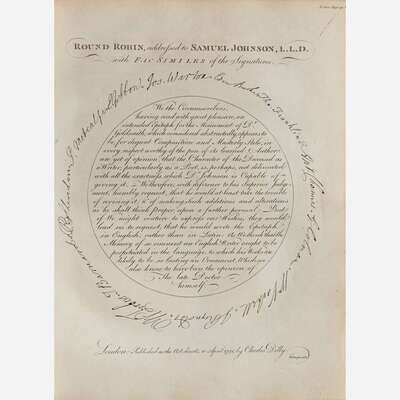 ROUND ROBIN, addressed to SAMUEL JOHNSON, L.L.D.
with FAC SIMILES of the Signatures.
Gibbon
Jos. Warton
Edm Burke
Tho. Franklin
Colman
Wm Vachell
J Reynolds
W Forbes
T. Barnard
R B Sheridan
P. Metcalfe
We the Circumscribers,
having read with great pleasure, an
intended Epitaph for the Monument of Dr
Goldsmith, which considered abstractedly, appears to
be for elegant Composition and Masterly Stile, in
every respect worthy of the pen of its learned Author;
are yet of opinion, that the Character of the Deceased as
a Writer, particularly as a Poet, is, perhaps, not delineated
with all the exactness which Dr Johnson is Capable of
giving it; We therefore, with deference to his Superior Judg-
ment, humbly request, that he would at least take the trouble
of revising it; & of making such additions and alterations
as he shall think proper upon a further perusal: But
if We might venture to express our Wishes, they would
lead us to request, that he would write the Epitaph
in English, rather than in Latin: As We think that the
Memory of so eminent an English Writer ought to be
perpetuated in the language, to which his Works are
likely to be so lasting an Ornament, Which we
also know to have been the opinion of
The late Doctor
himself.
London, Published as the Act directs, 10 April 1791, by Charles Dilly